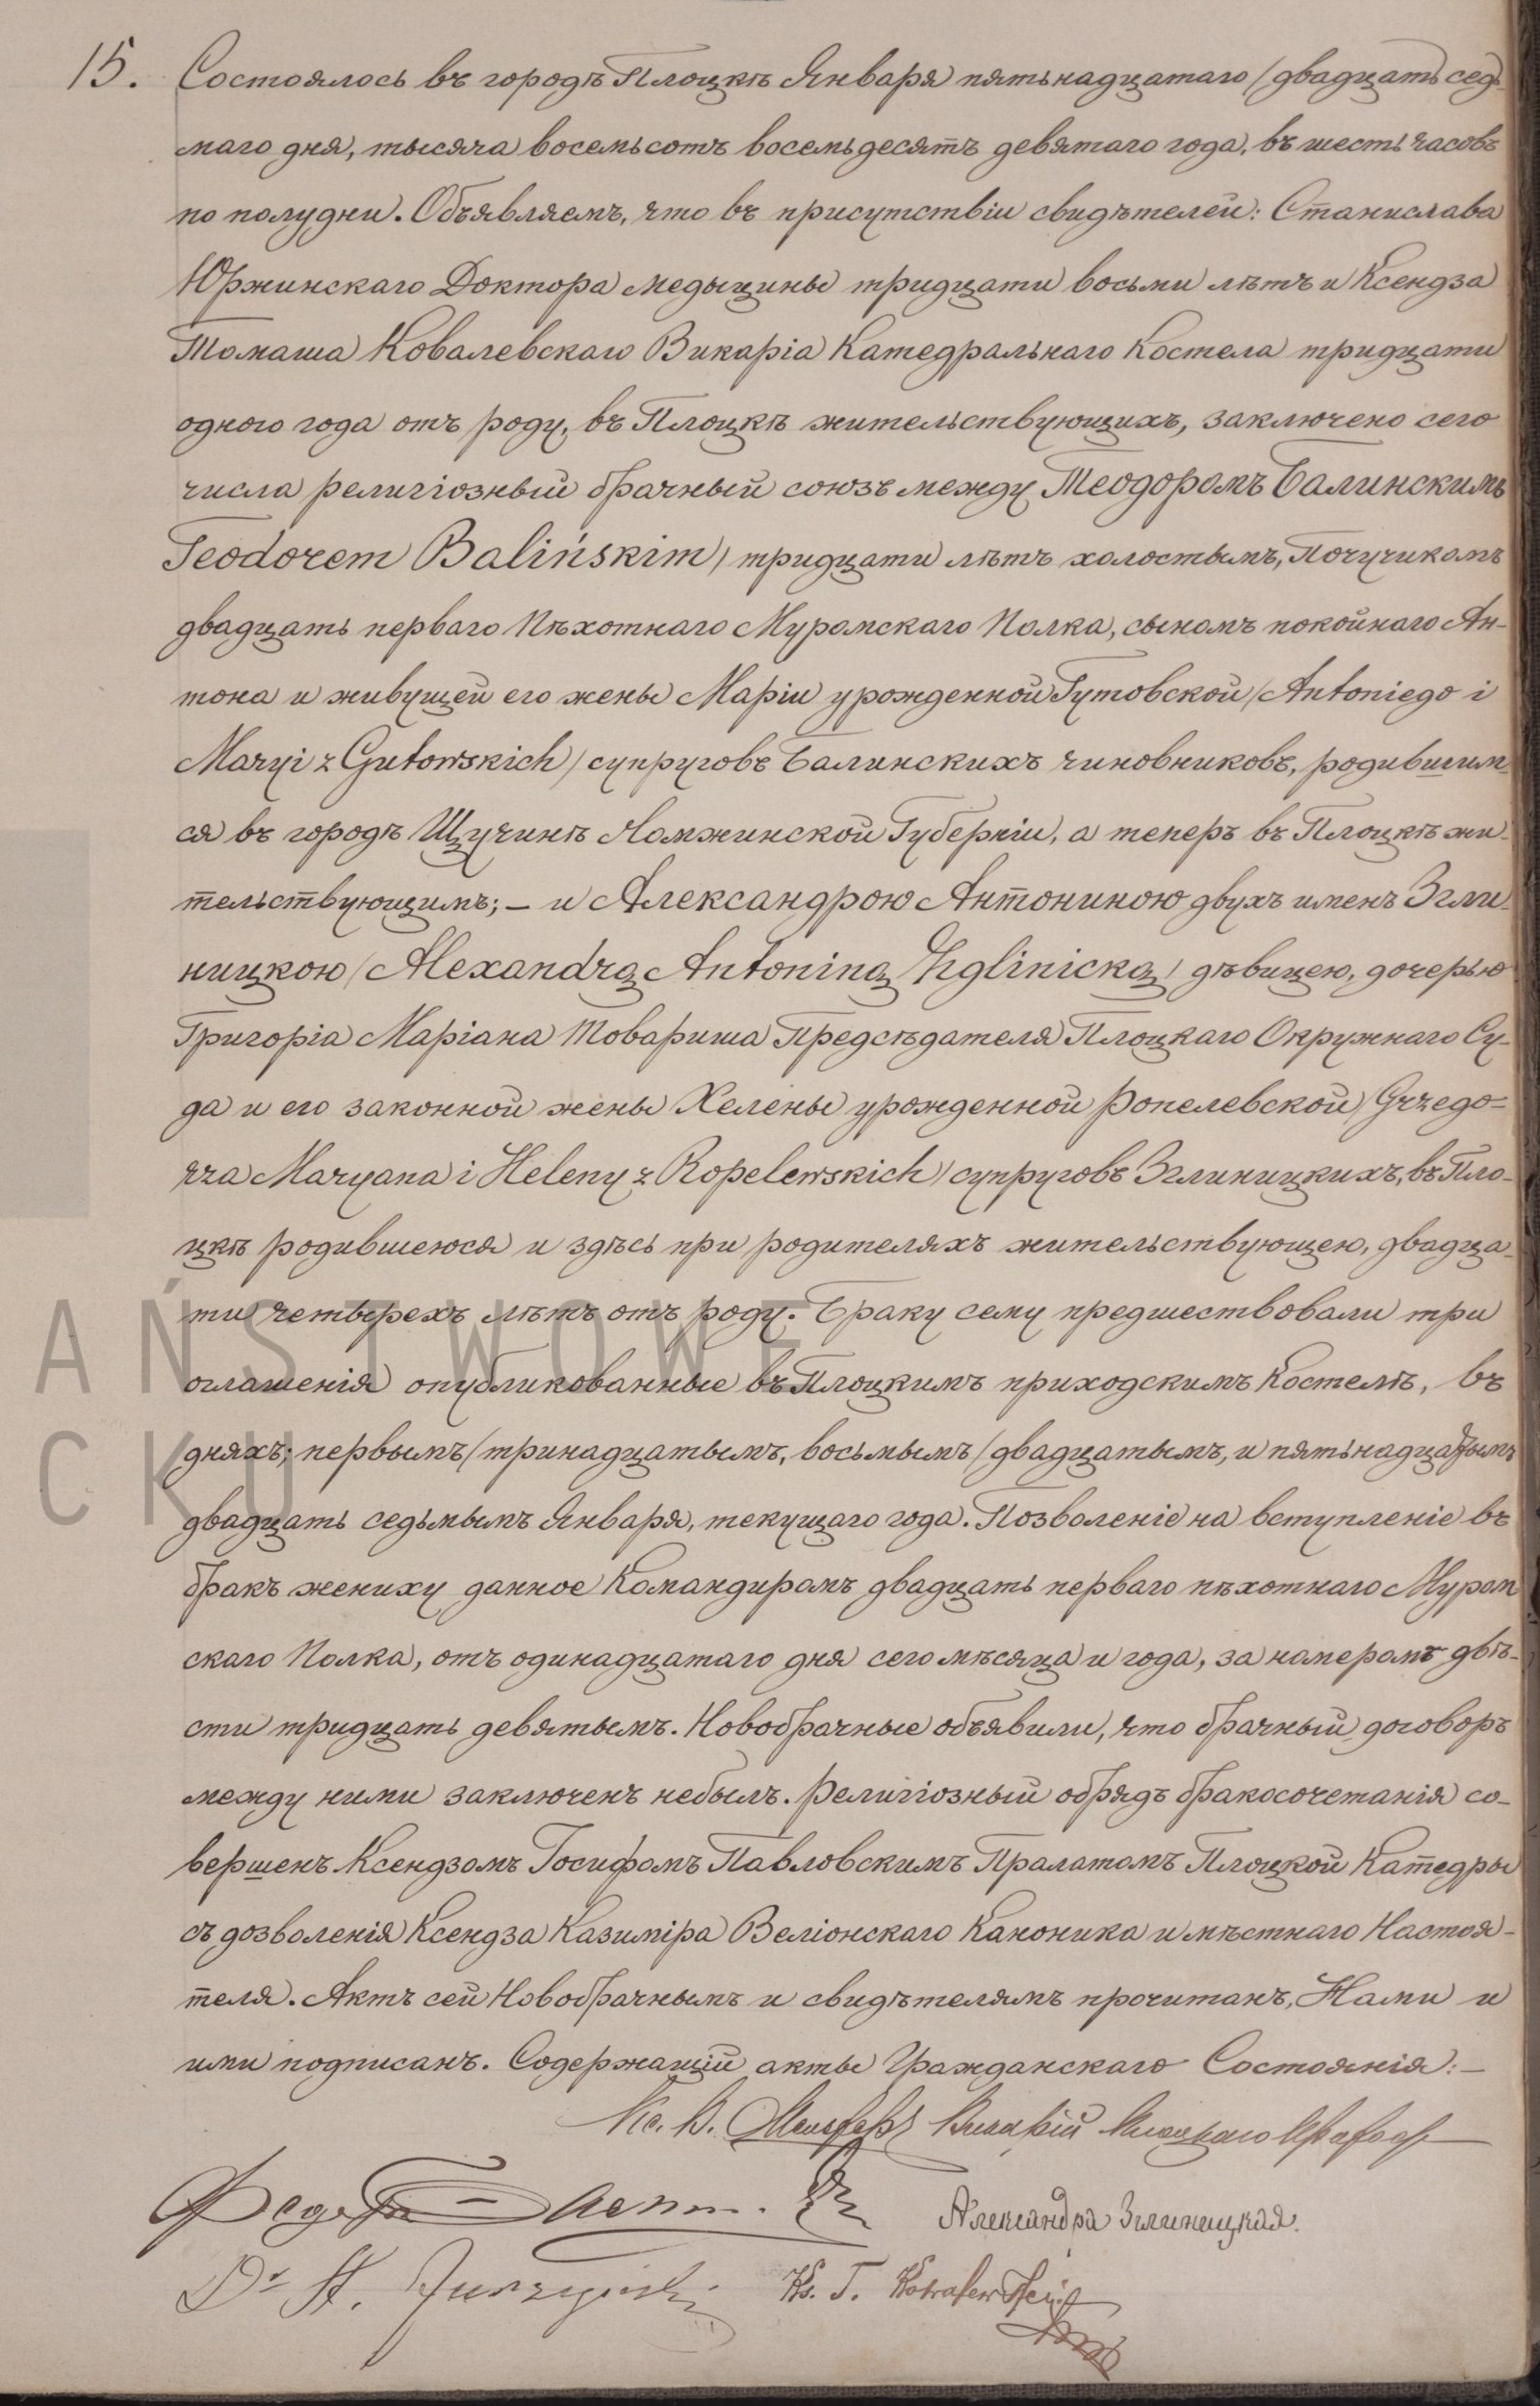 15. Состоялось въ городѣ Плоцкѣ Января пятьнадцатаго /двадцать седь-
маго дня, тысяча восемьсотъ восемьдесятъ девятаго года, въ шесть часовъ
по полудни. Объявляемъ, что въ присутствіи свидѣтелей: Станислава
Юржинскаго Доктора медыцины тридцати восьми лѣтъ и Ксендза
Томаша Ковалевскаго Викарія Катедральнаго Костела тридцати
одного года отъ роду, въ Плоцкѣ жительствующихъ, заключено сего
числа религіозный брачный союзъ между Теодоромъ Балинскимъ
Teodorem Balińskim) тридцати лѣтъ холостымъ, Поручикомъ
двадцать перваго Пѣхотнаго Муромскаго Полка, сыномъ покойнаго Ан-
тона и живущей его жены Маріи урожденной Гутовской (Antoniego i
Maryi z Gutowskich) супруговъ Балинскихъ чиновниковъ, родившим-
ся въ городѣ Щучинѣ Ломжинской Губерніи, а теперъ въ Плоцкѣ жи-
тельствующимъ; – и Александрою Антониною двухъ именъ Згли-
ницкою (Alexandrą Antoniną Zglinicką) дѣвицею, дочерью
Григорія Маріана Товарища Предсѣдателя Плоцкаго Окружнаго Су-
да и его законной жены Хелены урожденной Ропелевской) Grzego=
rza Maryana i Heleny z Ropelewskich) супруговъ Зглиницкихъ, въ Пло-
цкѣ родившеюся и здѣсь при родителяхъ жительствующею, двадца-
ти четырехъ лѣтъ отъ роду. Браку сему предшествовали три
оглашенія опубликованные въ Плоцкимъ приходскимъ Костелѣ, въ
дняхъ; первымъ /тринадцатымъ, восьмымъ /двадцатымъ, и пятьнадцатымъ
двадцать седьмымъ Января, текущаго года. Позволеніе на вступленіе въ
бракъ жениху данное Командиромъ двадцать перваго пѣхотнаго Муром
скаго Полка, отъ одинадцатаго дня сего мѣсяца и года, за номеромъ двѣ-
сти тридцать девятымъ. Новобрачные объявили, что брачный договоръ
между ними заключенъ небылъ. Религіозный обрядъ бракосочетанія со-
вершенъ Ксендзомъ Іосифомъ Павловскимъ Пралатомъ Плоцкой Катедры
съ дозволенія Ксендза Казиміра Веліонскаго Каноника и мѣстнаго Настоя-
теля. Актъ сей Новобрачнымъ и свидѣтелямъ прочитанъ, Нами и
ими подписанъ. Содержащій акты Гражданскаго Состоянія: –
Кс. В. Викарій
Александра Зглиницкая.
Dr St. Ks. T. Kowalewski
AŃSTWOWE
CKU